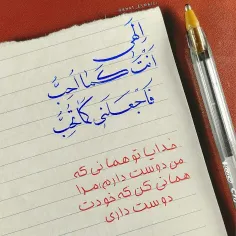 إلٰهي
أنْتَ كَما اُحِبُّ
فَاجْعَلْني كَما تُحِبُّ
خدایا تو همانی که
من دوست دارم، مرا
همانی کن که خودت
دوست داری